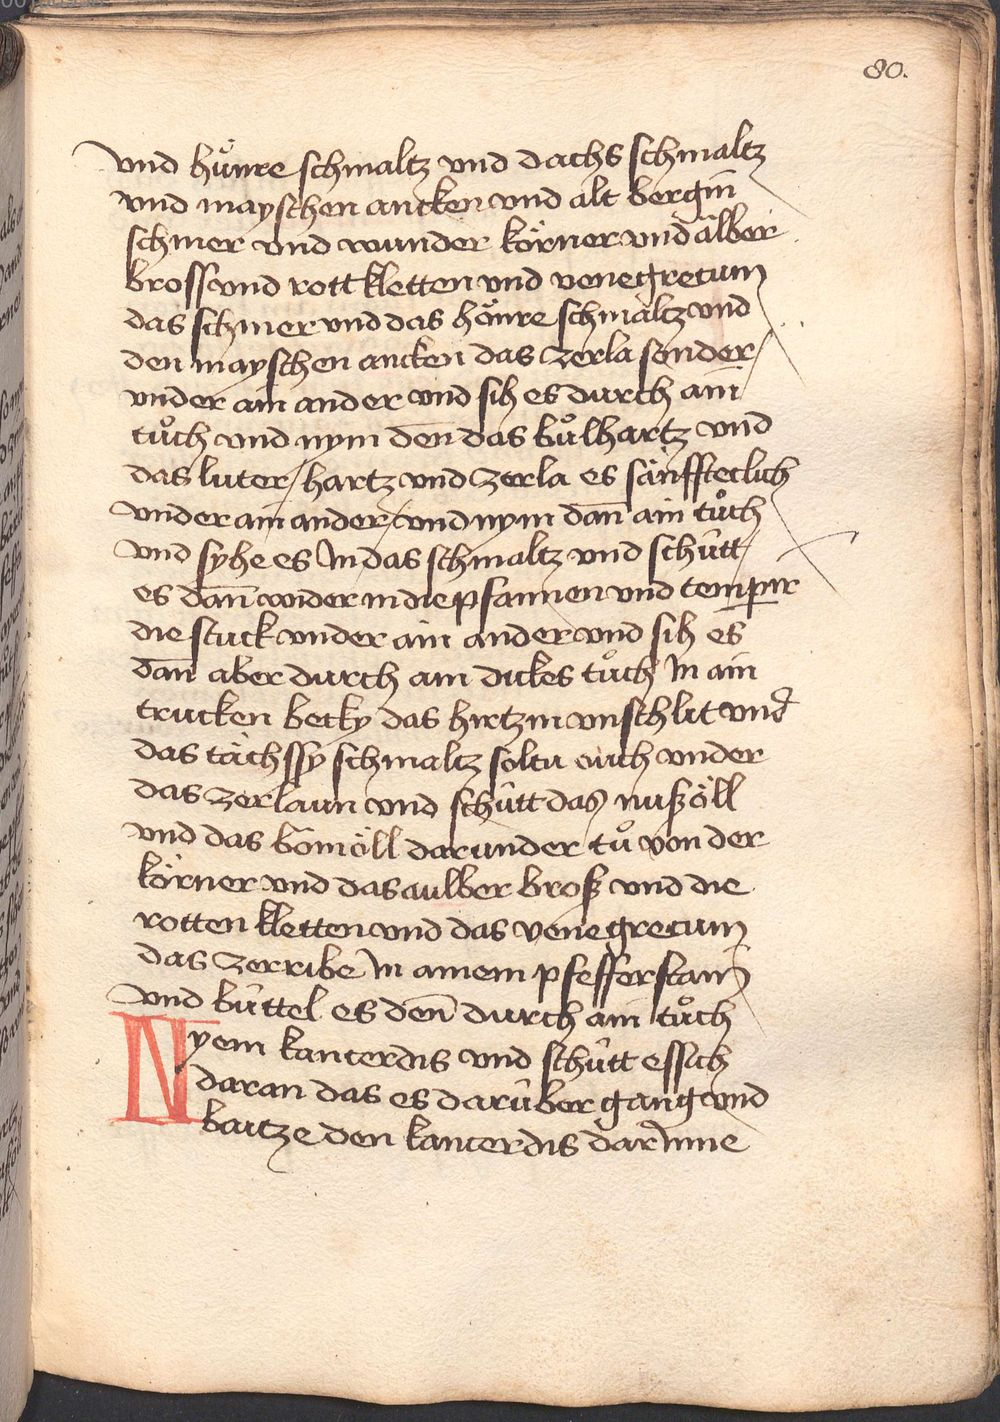 80.
vnd hu̓nre schmaltz vnd dachs schmaltz
vnd mayschen ancken vnd alt bergin
schmer vnd wunder körner vnd älber
bross vnd rott kletten vnd venegrecum
das schmer vnd das hönre schmaltz vnd
den mayschen ancken das zerla sonder
vnder ain ander vnd sih es durch ain
tůch vnd nym den̄ das bůlhartz vnd
das luter / hartz vnd zerla es sänffteclich
vnder ain ander / vnd nym dan̄ ain tůch
vnd syhe es In das schmaltz vnd schütt
es dan̄ wider in die pfannen vnd temperir
die stuck vnder ain ander vnd sih es
dan̄ aber durch ain dickes tůch In ain
trucken becky das hirtzin vnschlit vnd
das tächssy schmaltz soltu auch vnder
das zerlaun vnd schütt das nußöll
vnd das bömöll darunder tů von der
körner vnd das aulber broß vnd die
rotten kletten vnd das venegrecum
das zerribe In ainem pfefferstain
vnd büttel es den̄ durch ain tůch
Nyem kancerdis vnd schütt essich
daran das es darüber gang vnd
baitze den kancerdis dar Inne